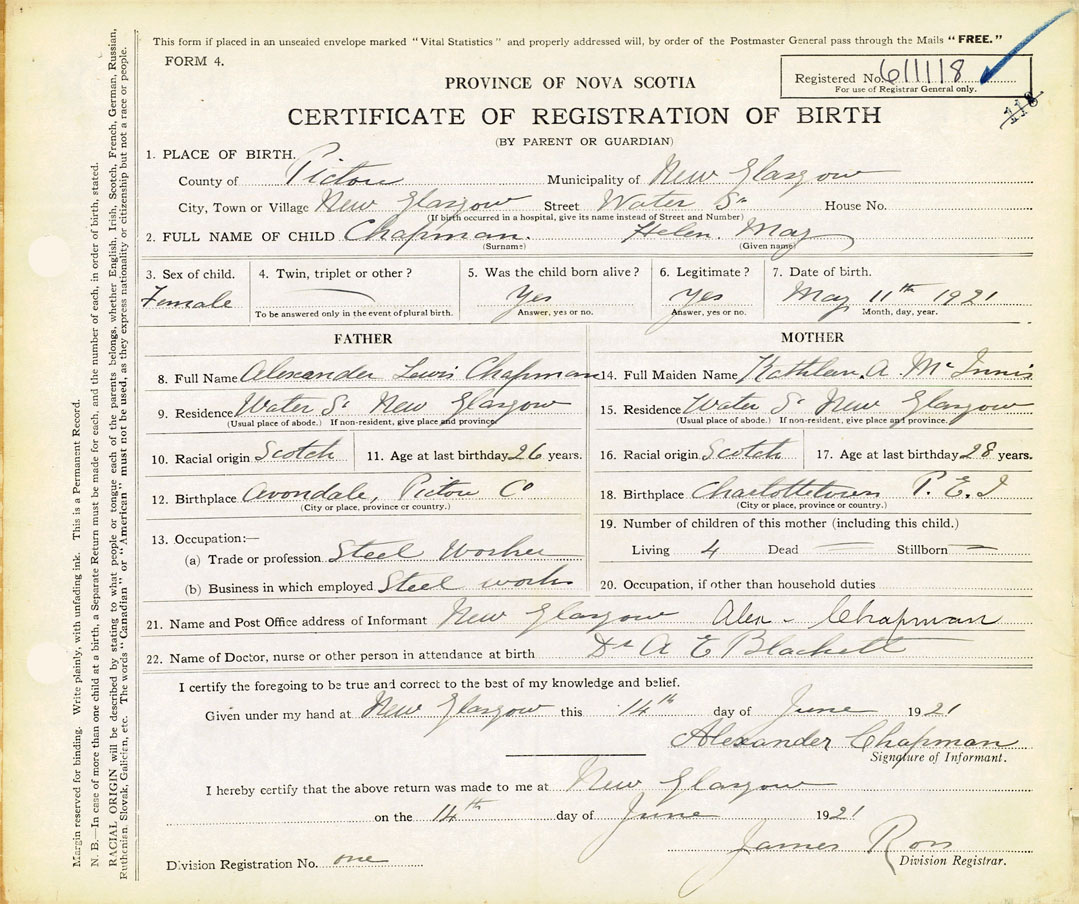 This form if placed in an unsealed envelope marked "Vital Statistics" and properly addressed will, by order of the Postmaster General pass through the Mails "FREE."
FORM 4.
Registered No. 611118
For use of Registrar General only.
118
PROVINCE OF NOVA SCOTIA
CERTIFICATE OF REGISTRATION OF BIRTH
(BY PARENT OR GUARDIAN)
1. PLACE OF BIRTH.
County of Pictou Municipality of New Glasgow
City, Town or Village New Glasgow Street Water St House No.
(If birth occurred in a hospital, give its name instead of Street and Number)
2. FULL NAME OF CHILD Chapman. Helen. May
(Surname) (Given name)
3. Sex of child. 4. Twin, triplet or other? 5. Was the child born alive? 6. Legitimate? 7. Date of birth.
Female Yes Yes May 11th 1921
To be answered only in the event of plural birth. Answer, yes or no. Answer, yes or no. Month, day, year.
FATHER
8. Full Name Alexander Lewis Chapman
9. Residence Water St New Glasgow
(Usual place of abode.) If non-resident, give place and province
10. Racial origin Scotch 11. Age at last birthday 26 years.
12. Birthplace Avondale, Pictou Co
(City or place, province or country.)
13. Occupation:—
(a) Trade or profession Steel Worker
(b) Business in which employed Steel works
MOTHER
14. Full Maiden Name Kathleen. A McInnis
15. Residence Water St New Glasgow
(Usual place of abode.) If non-resident, give place and province.
16. Racial origin Scotch 17. Age at last birthday 28 years.
18. Birthplace Charlottetown P. E. I
(City or place, province or country.)
19. Number of children of this mother (including this child.)
Living 4 Dead Stillborn
20. Occupation, if other than household duties
21. Name and Post Office address of Informant New Glasgow Alex - Chapman
22. Name of Doctor, nurse or other person in attendance at birth Dr A E Blackett
I certify the foregoing to be true and correct to the best of my knowledge and belief.
Given under my hand at New Glasgow this 14th day of June 1921
Alexander Chapman
Signature of Informant.
I hereby certify that the above return was made to me at New Glasgow
on the 14th day of June 1921
James Ross
Division Registrar.
Division Registration No. one
Margin reserved for binding. Write plainly, with unfading ink. This is a Permanent Record.
N. B.—In case of more than one child at a birth, a Separate Return must be made for each, and the number of each, in order of birth, stated.
RACIAL ORIGIN will be described by stating to what people or tongue each of the parents belongs, whether English, Irish, Scotch, French, German, Russian,
Ruthenian, Slovak, Galician, etc. The words "Canadian" or "American" must not be used, as they express nationality or citizenship but not a race or people.